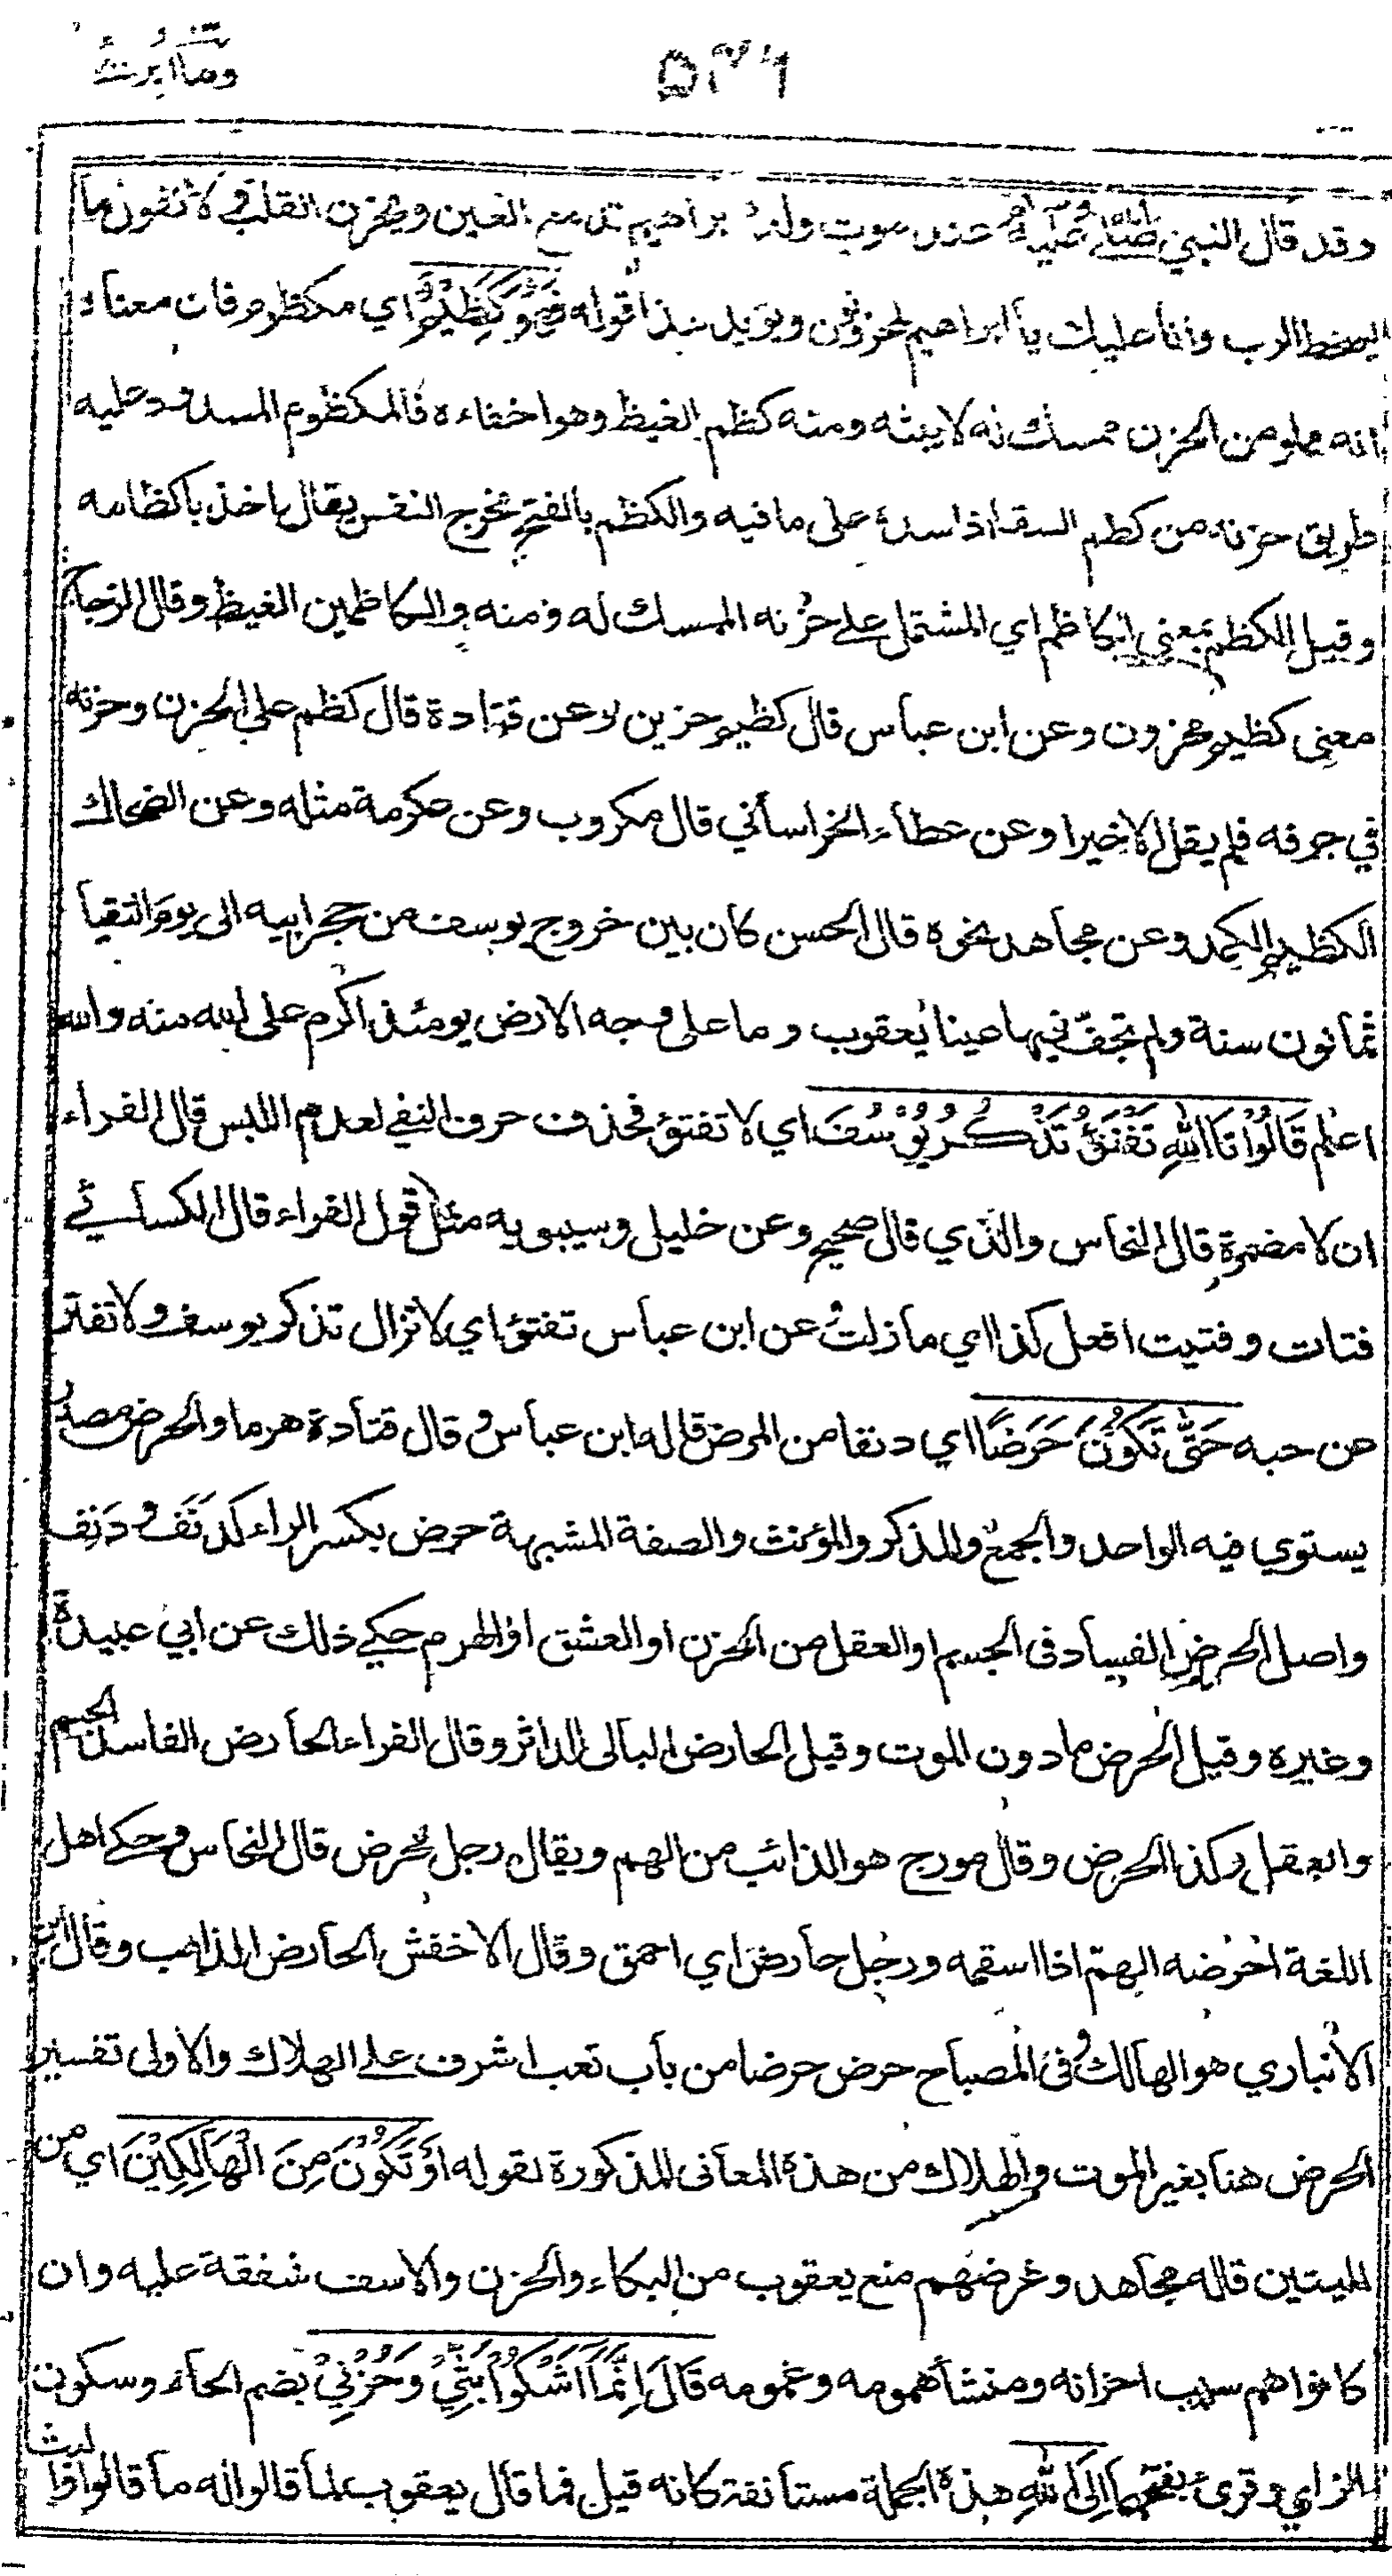 وما ابرئ
٥٣٦
وقد قال النبي صلى الله عليه وآله وسلم عند موت ولده ابراهيم تدمع العين ويحزن القلب ولا نقول ما
يسخط الرب وانا عليك يا ابراهيم لمحزونون ويؤيد هذا قوله فَهُوَ كَظِيْمٌ اي مكظوم فان معناه
انه مملو من الحزن ممسك له لا يبثه ومنه كظم الغيظ وهو اخفاءه فالمكظوم المسدود عليه
طريق حزنه من كظم السقا اذا سده على ما فيه والكظم بالفتح مخرج النفس يقال اخذ باكظامه
وقيل الكظيم بمعنى الكاظم اي المشتمل على حزنه الممسك له ومنه والكاظمين الغيظ وقال الزجاج
معنى كظيم محزون وعن ابن عباس قال كظيم حزين وعن قتادة قال كظم على الحزن وحزنه
في جوفه فلم يقل الا خيرا وعن عطاء الخراساني قال مكروب وعن عكرمة مثله وعن الضحاك
الكظيم الكمد وعن مجاهد نحوه قال الحسن كان بين خروج يوسف من حجر ابيه الى يوم التقيا
ثمانون سنة ولم تجفّ فيها عينا يعقوب وما على وجه الارض يومئذ اكرم على الله منه والله
اعلم قَالُوْا تَا اللّٰهِ تَفْتَؤُ تَذْكُرُ يُوْسُفَ اي لا تفتؤ فحذف حرف النفي لعدم اللبس قال الفراء
ان لا مضمرة قال النحاس والذي قال صحيح وعن خليل وسيبويه مثل قول الفراء قال الكسائي
فتات وفتيت افعل كذا اي ما زلت عن ابن عباس تفتؤ اي لا تزال تذكر يوسف ولا تفتر
من حبه حَتّٰى تَكُوْنَ حَرَضًا اي دنفا من المرض قاله ابن عباس وقال قتادة هرما والحرض مصدر
يستوي فيه الواحد والجمع والمذكر والمؤنث والصفة المشبهة حرض بكسر الراء كدَنَف ودَنِف
واصل الحرض الفساد فى الجسم او العقل من الحزن او العشق او الهرم حكي ذلك عن ابي عبيدة
وغيره وقيل الحرض ما دون الموت وقيل الحارض البالى الداثر وقال الفراء الحارض الفاسد الجسم
والعقل وكذا الحرض وقال مورج هو الذائب من الهم ويقال رجل محرض قال النحاس وحكى اهل
اللغة احرضه الهمّ اذا اسقمه ورجل حارض اي احمق وقال الاخفش الحارض الذاهب وقال ابن
الانباري هو الهالك وفى المصباح حرض حرضا من باب تعب اشرف على الهلاك والاولى تفسير
الحرض هنا بغير الموت والهلاك من هذه المعانى المذكورة لقوله اَوْ تَكُوْنَ مِنَ الْهَالِكِيْنَ اي من
الميتين قاله مجاهد وغرضهم منع يعقوب من البكاء والحزن والاسف شفقة عليه وان
كانوا هم سبب احزانه ومنشأ همومه وغمومه قَالَ اِنَّمَا اَشْكُوْا بَثِّيْ وَحُزْنِيْ بضم الحاء وسكون
الزاي وقرئ بفتحهما اِلَى اللّٰهِ هذه الجملة مستانفة كانه قيل فما قال يعقوب لما قالوا له ما قالوا والبث